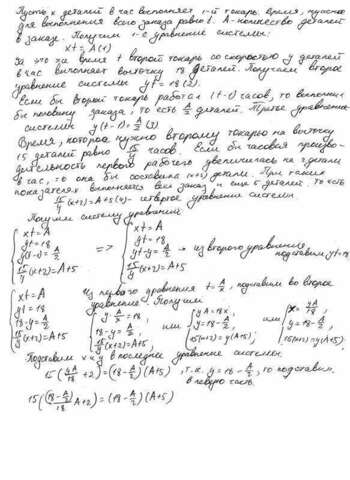 Пусть x деталей в час выполняет 1-й токарь. Время, нужное
для выполнения всего заказа равно t. А-количество деталей
в заказе. Получим 1-е уравнение системы:
xt=A (1)
За это же время t второй токарь со скоростью y деталей
в час выполняет выточку 18 деталей. Получаем второе
уравнение системы yt=18 (2)
Если бы второй токарь работал (t-1) часов, то выполнил
бы половину заказа, то есть A/2 деталей. Третье уравнение
системы y(t-1)=A/2
Время, которое нужно второму токарю на выточку
15 деталей равно 15/y часов. Если бы часовая произво-
дительность первого рабочего увеличилась на 2 детали
в час, то она бы составила (x+2) детали. При таких
показателях выполняется весь заказ и еще 5 деталей. То есть
15/y (x+2)=A+5 (4) - четвертое уравнение системы.
Получим систему уравнений
{ xt=A
yt=18
y(t-1)=A/2
15/y (x+2)=A+5
=> { xt=A
yt=18
yt-y=A/2 → из второго уравнения подставим yt=18
15/y (x+2)=A+5
{ xt=A
yt=18
18-y=A/2
15/y (x+2)=A+5
Из первого уравнения t=A/x, подставим во второе
уравнение. Получим
{ y·A/x=18
18-y=A/2
15/y (x+2)=A+5
или { yA=18x,
y=18-A/2,
15(x+2)=y(A+5);
или { x=yA/18,
y=18-A/2,
15(x+2)=y(A+5)
Подставим x и y в последнее уравнение системы.
15(yA/18+2)=(18-A/2)(A+5), т.к. y=18-A/2, то подставим
в левую часть.
15((18-A/2)/18 A+2)=(18-A/2)(A+5)